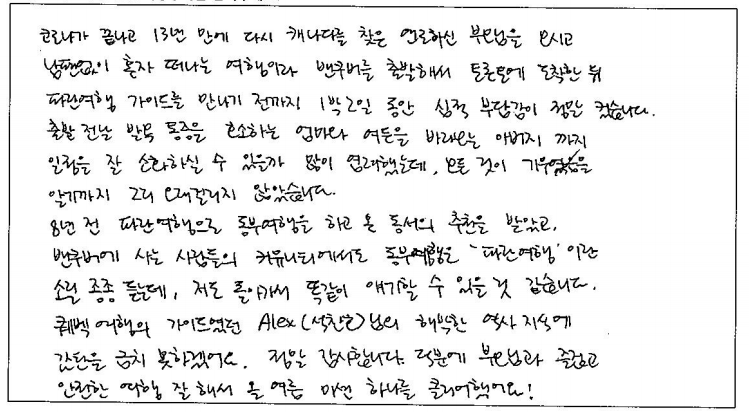 코로나가 끝나고 13년 만에 다시 캐나다를 찾은 연로하신 부모님을 모시고
남편없이 혼자 떠나는 여행이라 밴쿠버를 출발해서 토론토에 도착한 뒤
파란여행 가이드를 만나기 전까지 1박2일 동안 심적 부담감이 정말 컸습니다.
출발 전날 발목 통증을 호소하는 엄마와 여든을 바라보는 아버지 까지
일정을 잘 소화하실 수 있을까 많이 염려했는데, 모든 것이 기우였음을
알기까지 그리 오래걸리지 않았습니다.
8년 전 파란여행으로 동부여행을 하고 온 동서의 추천을 받았고,
밴쿠버에 사는 사람들의 커뮤니티에서도 동부여행은 '파란여행' 이란
소릴 종종 듣는데, 저도 돌아가서 똑같이 얘기할 수 있을 것 같습니다.
퀘벡여행의 가이드였던 Alex(석찬호)님의 해박한 역사 지식에
감탄을 금치 못하겠어요. 정말 감사합니다. 덕분에 부모님과 즐겁고
안전한 여행 잘 해서 올 여름 미션 하나를 클리어했어요!